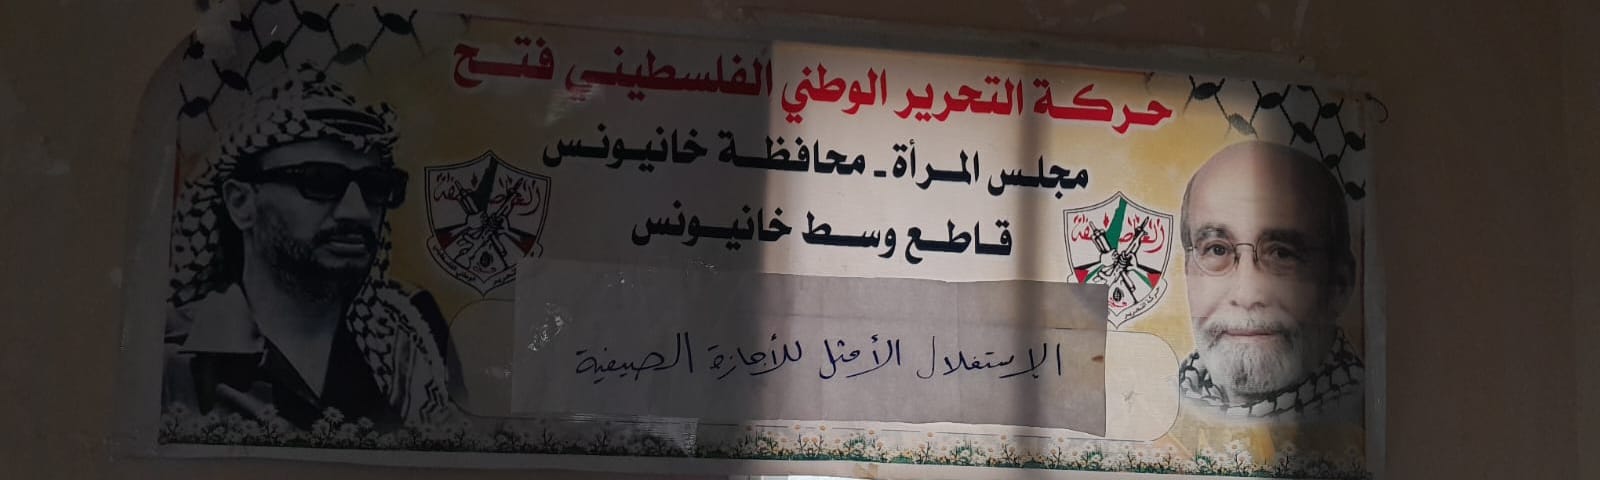 حركة التحرير الوطني الفلسطيني فتح
مجلس المرأة - محافظة خانيونس
قاطع وسط خانيونس
العاصفة
العاصفة
الإستغلال الأمثل للأجازة الصيفية